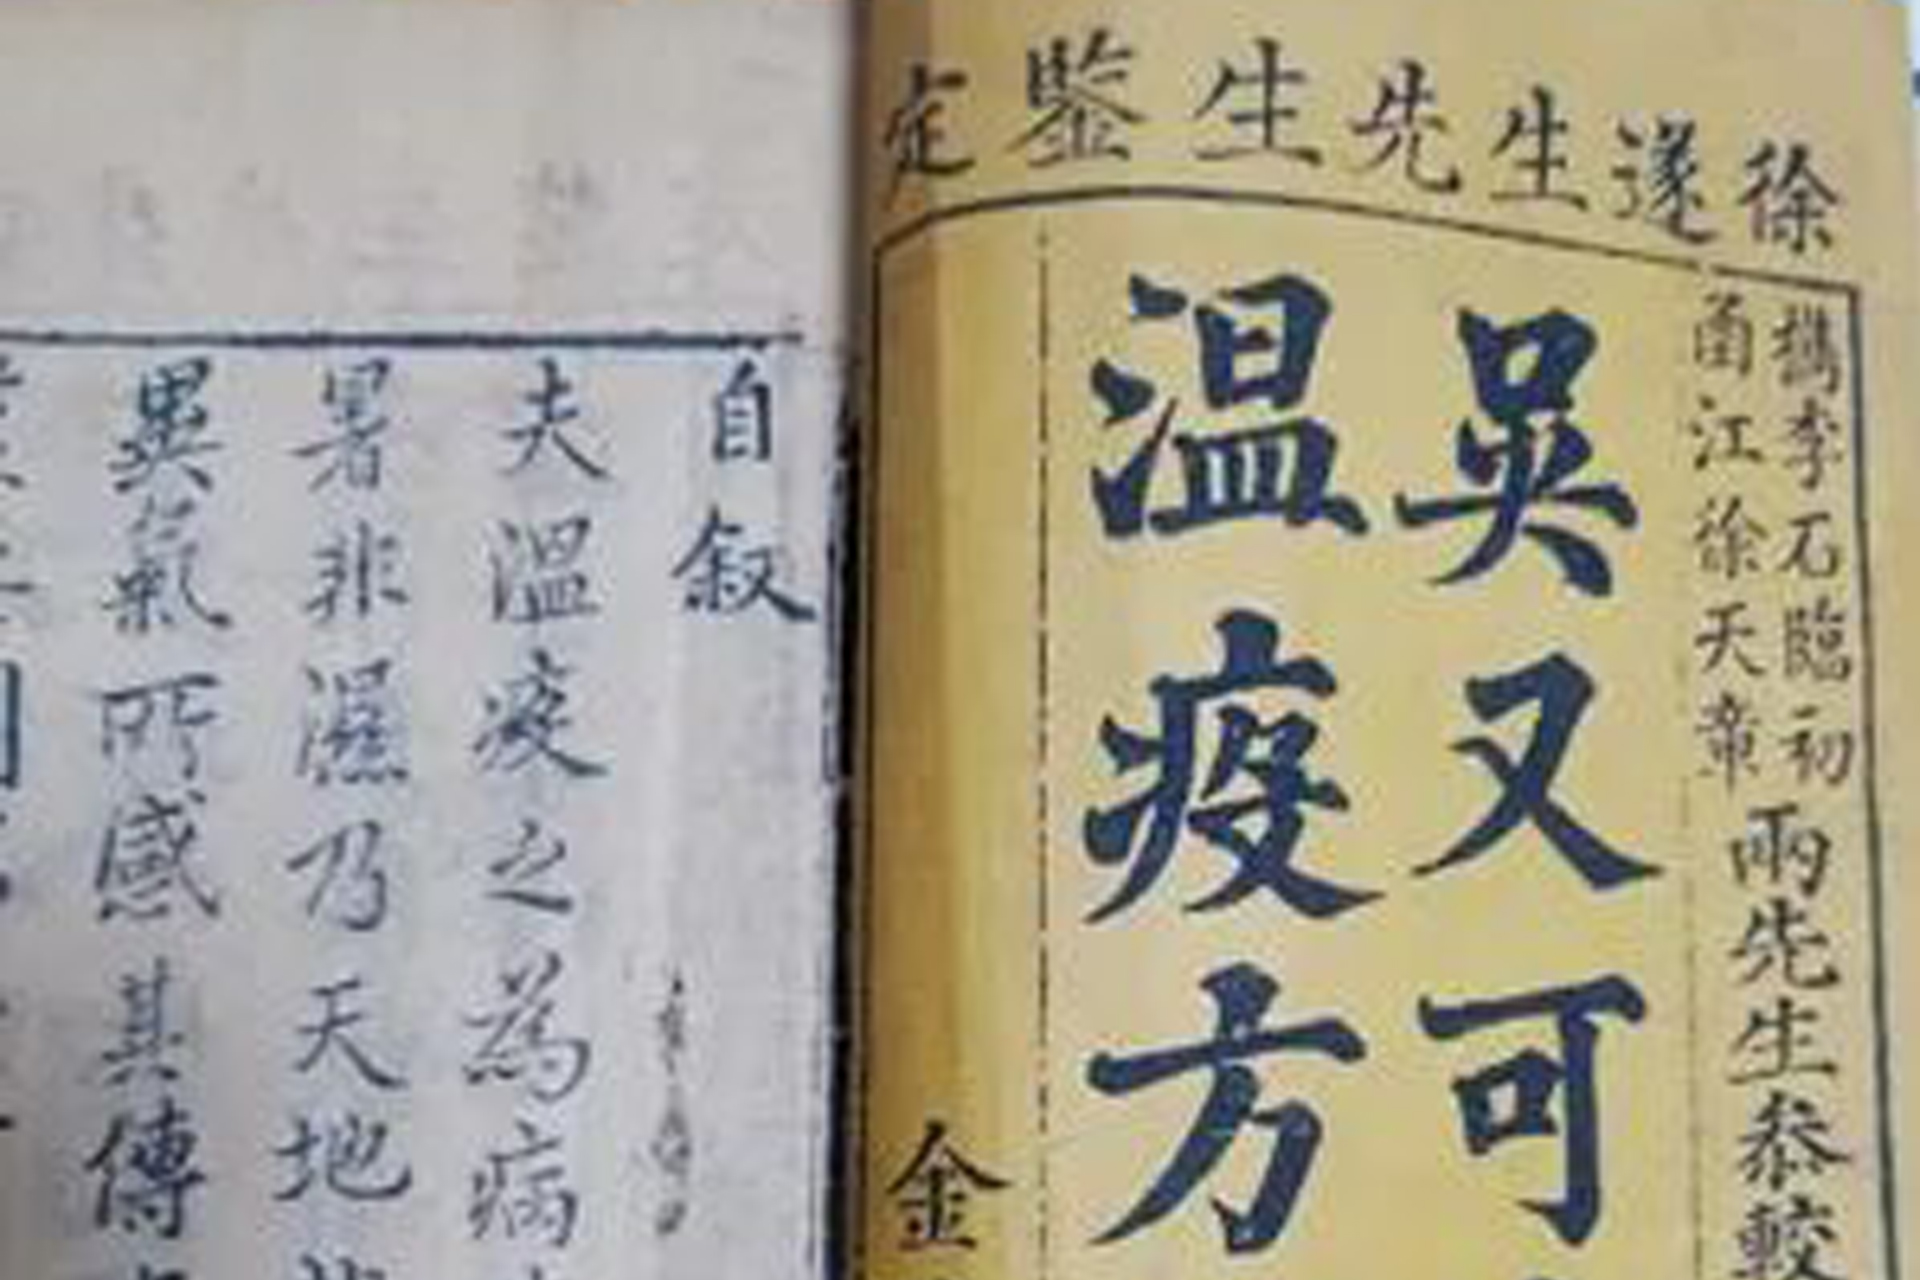 徐遂生先生鑒定
檇李石臨初
函江徐天章
兩先生叅較
吳又可
溫疫方
金
自叙
夫溫疫之為病
暑非濕乃天地
異氣所感其傳